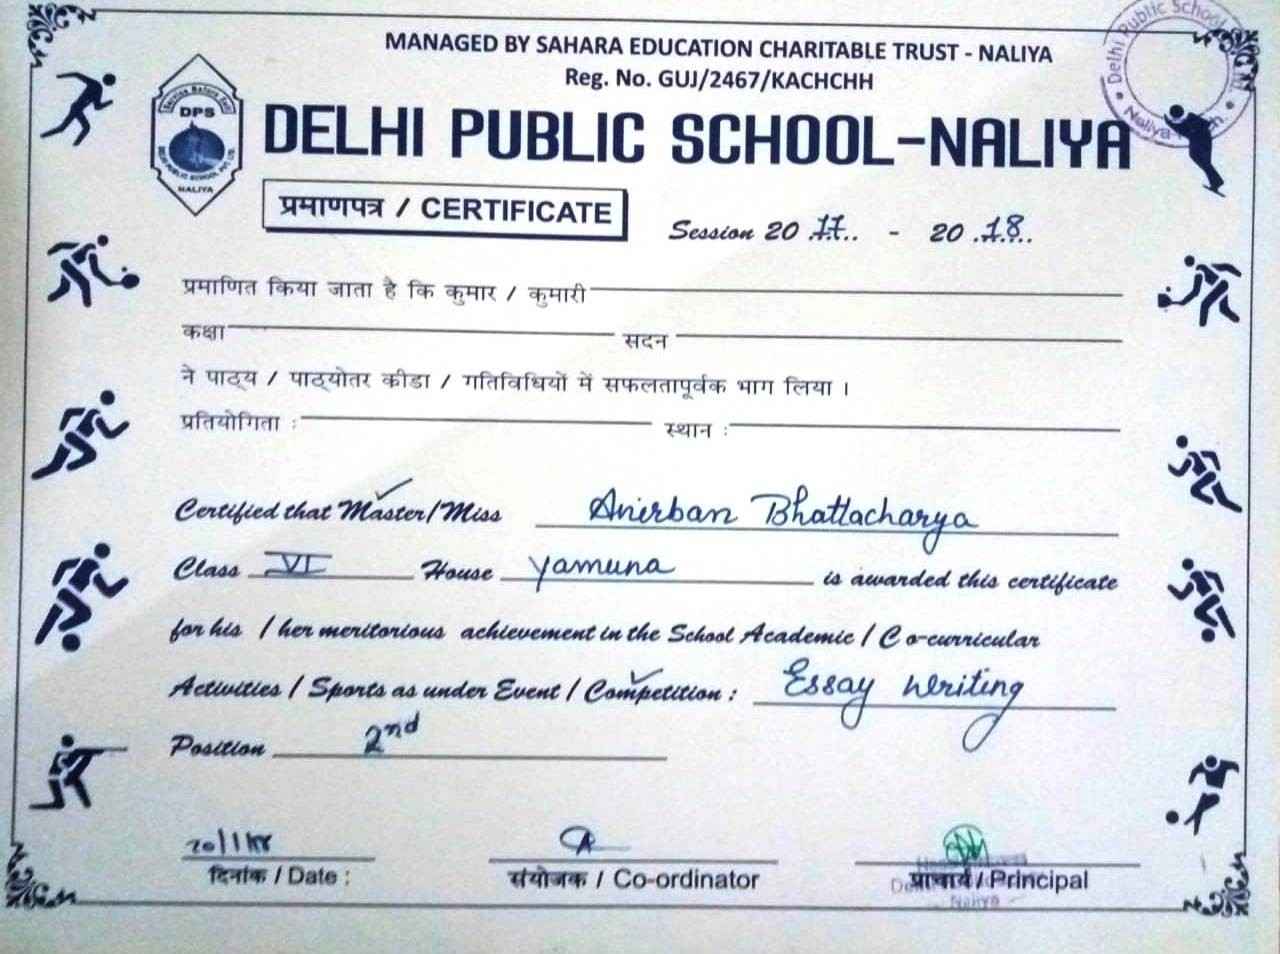 MANAGED BY SAHARA EDUCATION CHARITABLE TRUST - NALIYA
Reg. No. GUJ/2467/KACHCHH
Delhi Public School
Naliya
Service Before Self
DPS
NALIYA
DELHI PUBLIC SCHOOL-NALIYA
प्रमाणपत्र / CERTIFICATE
Session 20 17.. - 20 .18..
प्रमाणित किया जाता है कि कुमार / कुमारी
कक्षा सदन
ने पाठ्य / पाठ्योतर कीडा / गतिविधियों में सफलतापूर्वक भाग लिया ।
प्रतियोगिता : स्थान :
Certified that Master/Miss Anirban Bhattacharya
Class VI House Yamuna is awarded this certificate
for his / her meritorious achievement in the School Academic / Co-curricular
Activities / Sports as under Event / Competition : Essay Writing
Position 2nd
दिनांक / Date : संयोजक / Co-ordinator प्राचार्य / Principal
Naliya